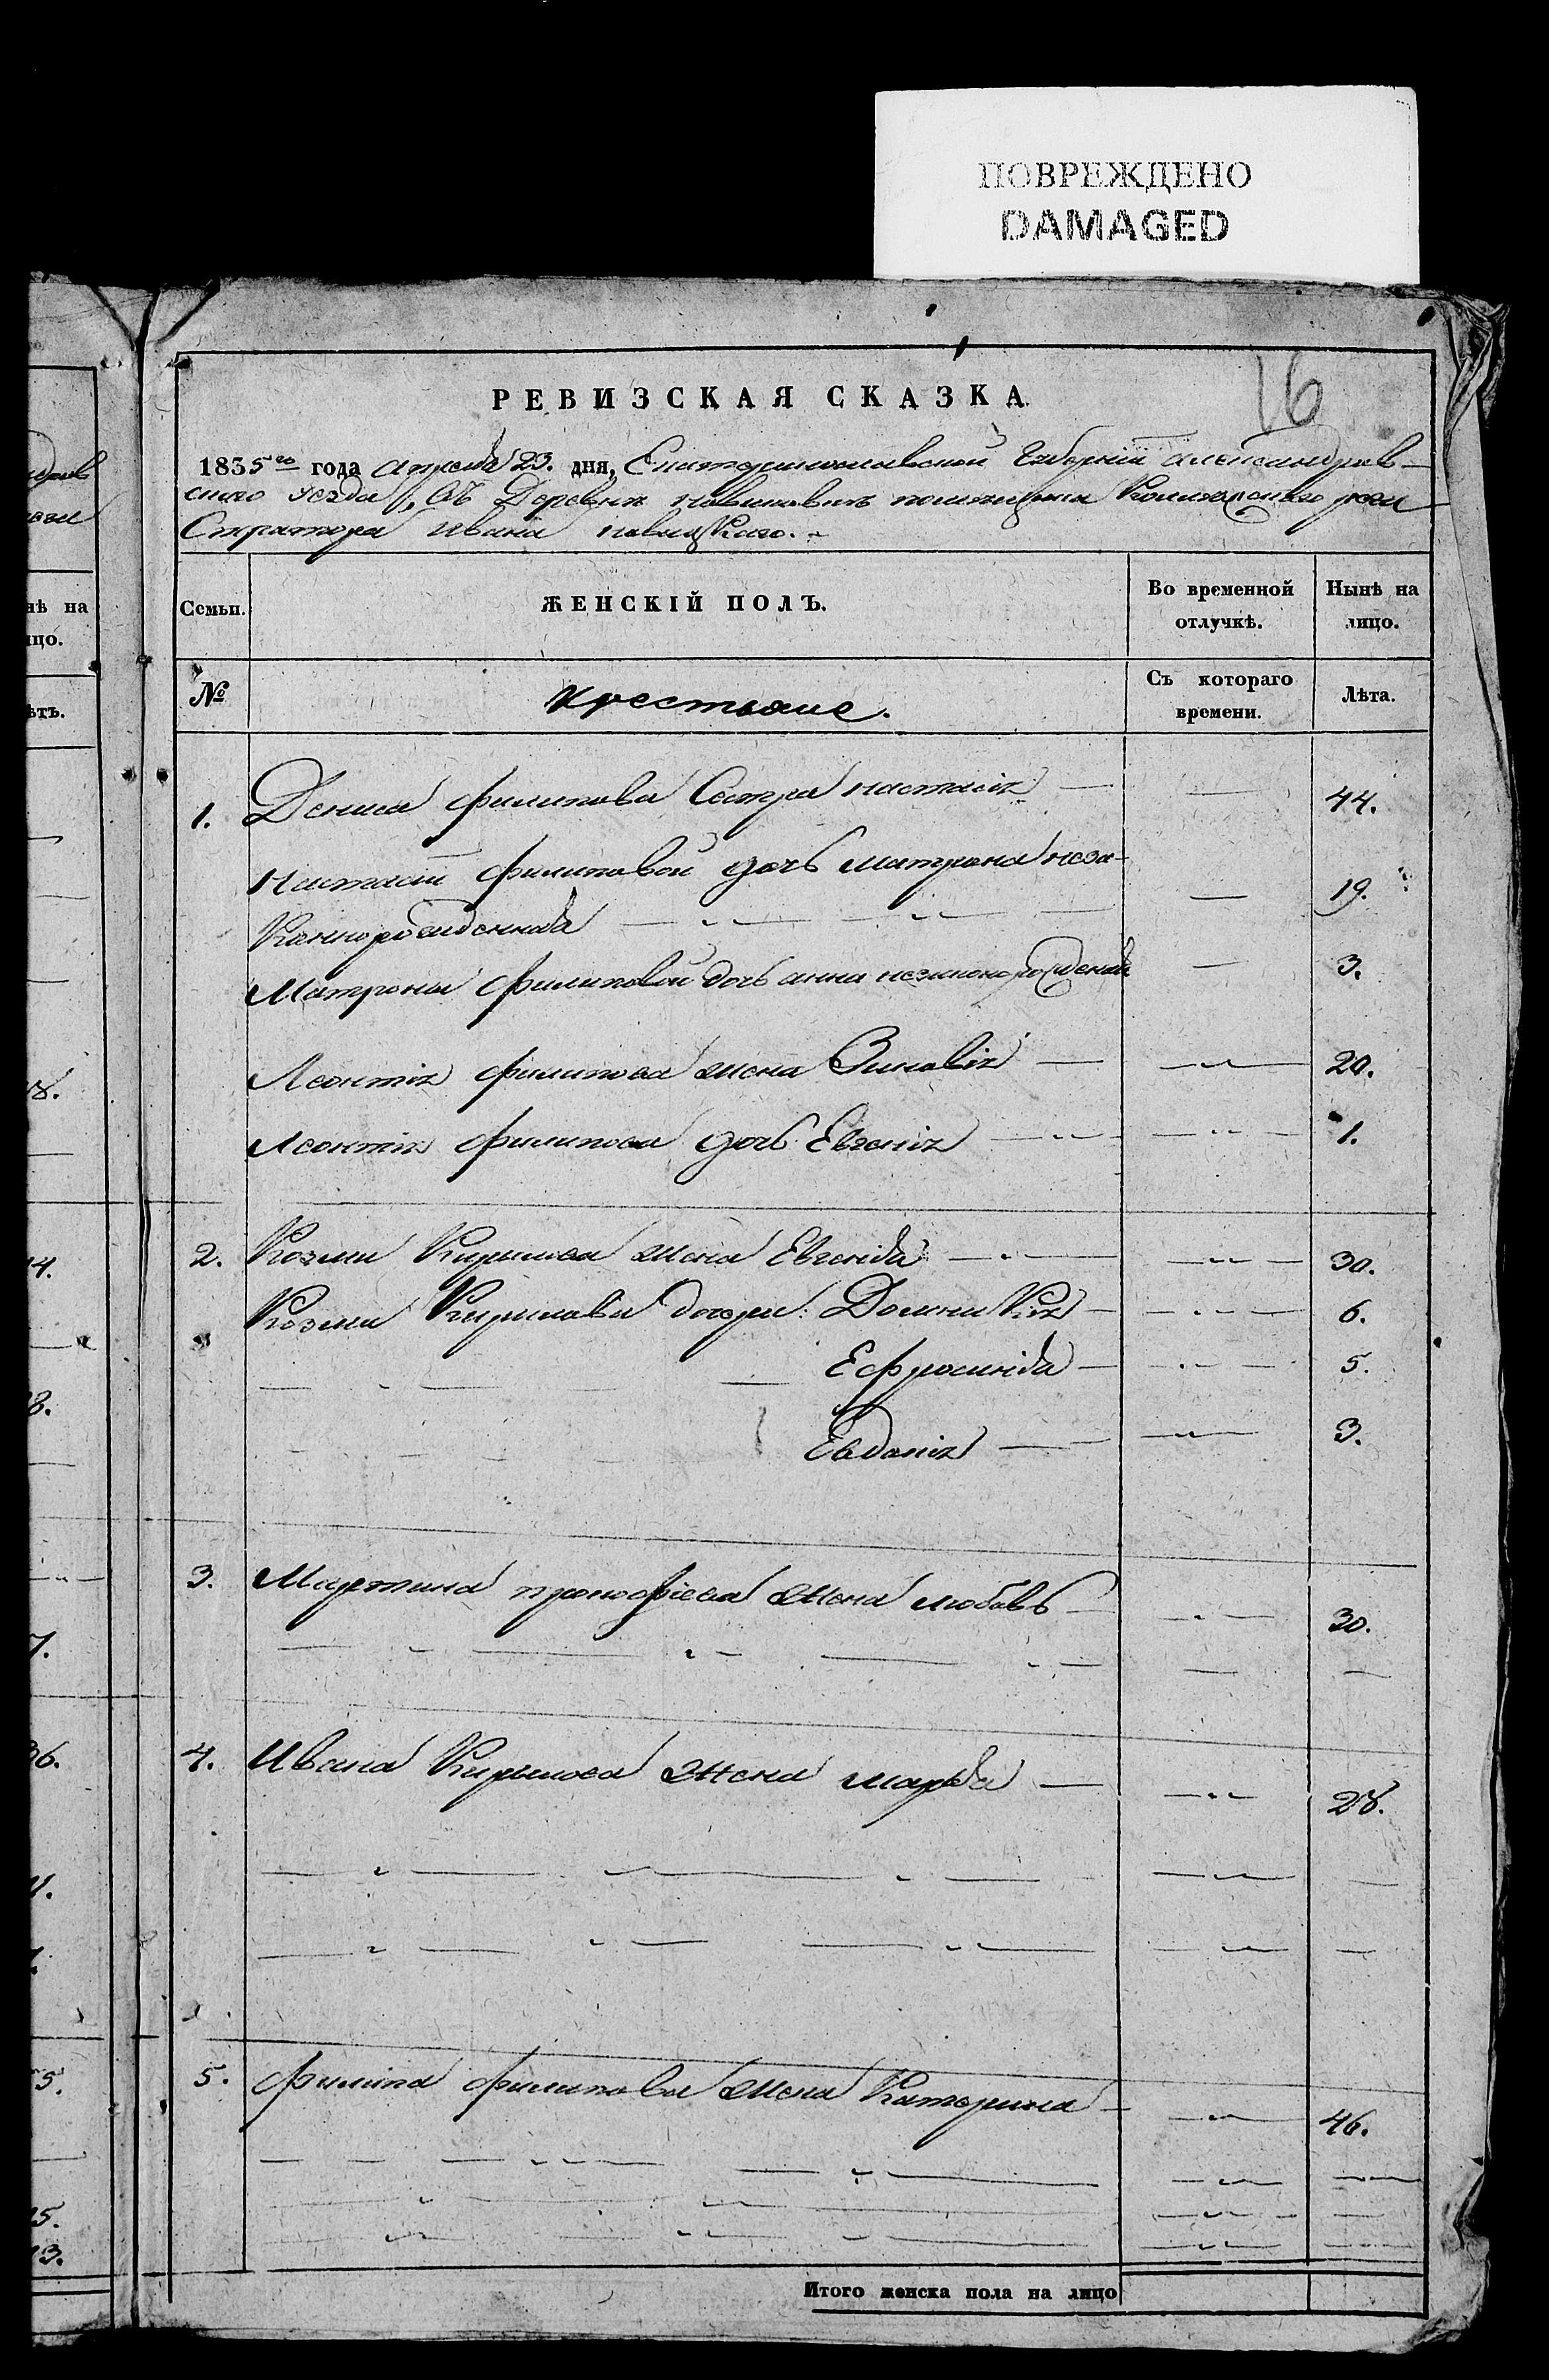 ПОВРЕЖДЕНО
DAMAGED
16
РЕВИЗСКАЯ СКАЗКА
1835го года апреля 23. дня, Екатеринославской Губернiи александров-
скаго уезда, въ Деревне помещика Колежскаго реги
Стратора Ивана новицкаго.
Семьи.
ЖЕНСКІЙ ПОЛЪ.
Во временной отлучкѣ.
Нынѣ на лицо.
№
крестьяне.
Съ котораго времени.
Лѣта.
1. Дениса филипова Сестра настасiя 44.
Настасiи филиповой дочь матрона неза-
коннорожденная 19.
Матроны филиповой дочь анна незаконорожденая 3.
Леонтiя филипова жена Зиновiя 20.
Леонтiя филипова дочь Евгенiя 1.
2. Козми Кирилова жена Евгенiя 30.
Козми Кирилова дочери: Домникiя 6.
Ефросинiя 5.
Евдокiя 3.
3. Мартина прокофiева жена любовь 30.
4. Ивана Кирилова жена марья 28.
5. филипа филипова жена Катерина 46.
Итого женска пола на лицо